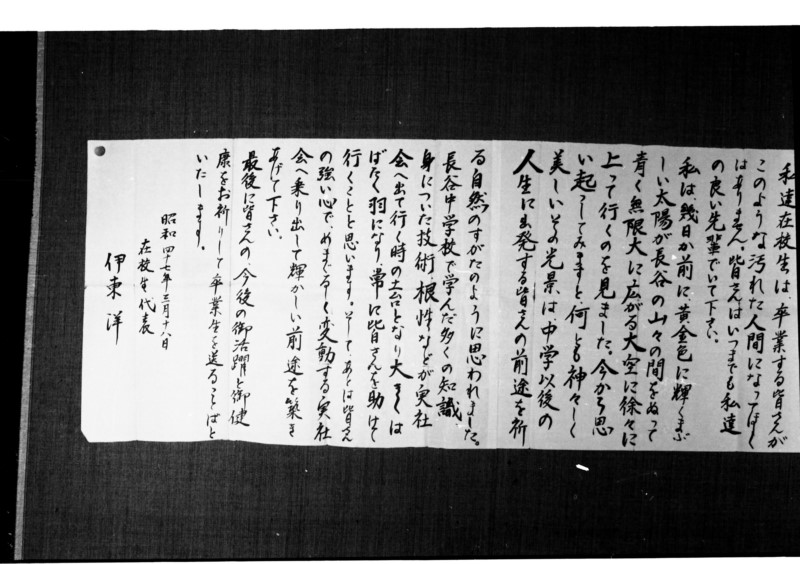 私達在校生は、卒業する皆さんが
このような汚れた人間になってほしく
はありません。皆さんはいつまでも私達
の良い先輩でいて下さい。
私は幾日か前に、黄金色に輝くまぶ
しい太陽が長谷の山々の間をぬって
青く無限大に広がる大空に徐々に
上って行くのを見ました。今から思
い起こしてみますと何とも神々しく
美しいその光景は、中学以後の
人生に出発する皆さんの前途を祈
る自然のすがたのように思われました。
長谷中学校で学んだ多くの知識
身についた技術、根性などが実社
会へ出て行く時の土台となり大きくは
ばたく羽になり常に皆さんを助けて
行くことと思います。そして、あとは皆さん
の強い心で、めまぐるしく変動する実社
会へ乗り出して輝かしい前途を築き
あげて下さい。
最後に皆さんの今後の御活躍と御健
康をお祈りして卒業生を送ることばと
いたします。
昭和四十七年三月十八日
在校生代表
伊東洋